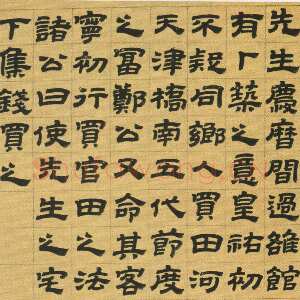 先生慶曆間過雒館
有卜築之意皇祐初
不同鄉人買田河
天津橋南五代節度
之富鄭公又命其客
寧初行買官田之法
諸公曰使先生之宅
下集錢買之